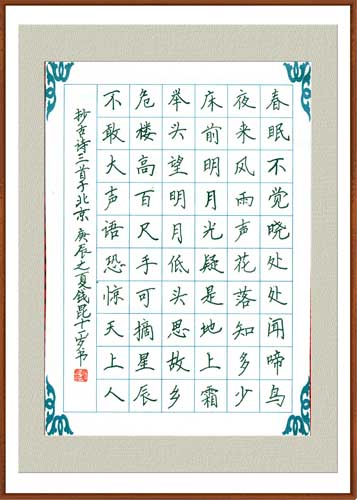 春眠不觉晓处处闻啼鸟
夜来风雨声花落知多少
床前明月光疑是地上霜
举头望明月低头思故乡
危楼高百尺手可摘星辰
不敢大声语恐惊天上人
抄古诗三首于北京 庚辰之夏钱昆十一岁书